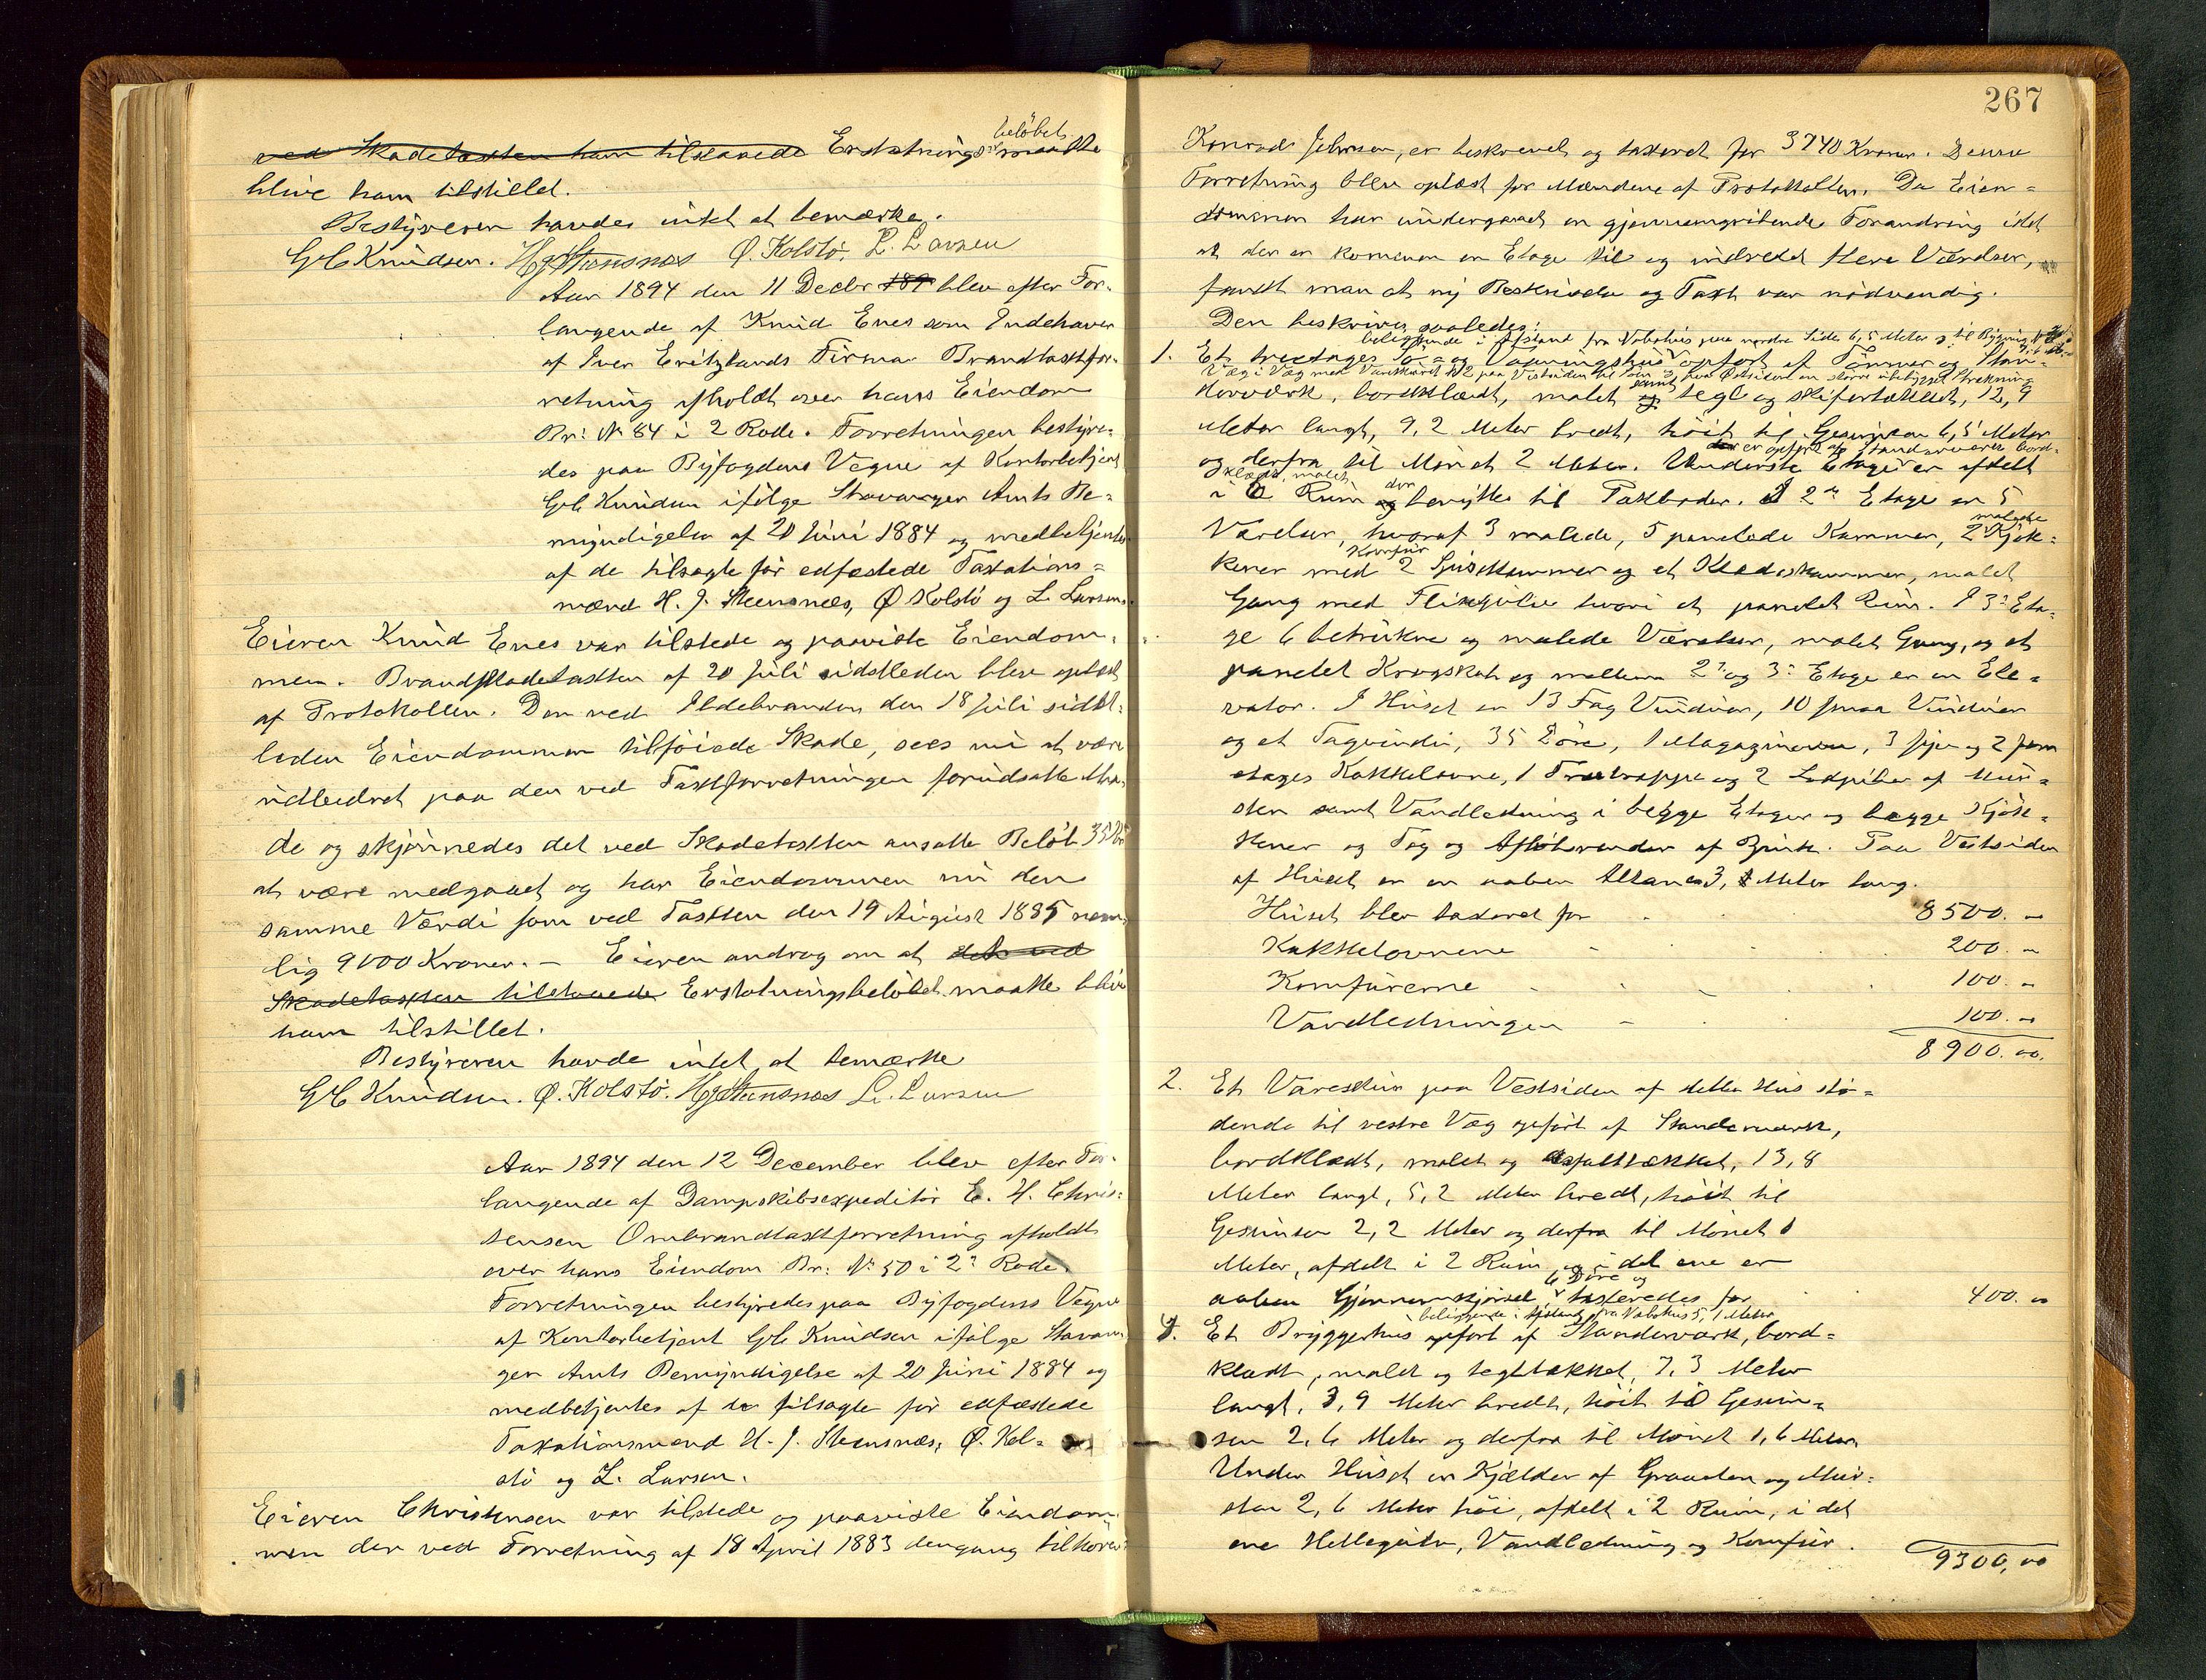 ved Skadetaxten ham tilstaaede Erstatnings beløbet maatte
blive ham tilstillet.
Bestyreren havde intet at bemærke.
G C Knudsen. H J Steensnæs Ø. Kolstø. L. Larsen
Aar 1894 den 11 Decbr 189 blev efter For-
langende af Knud Enes som Indehaver
af Iver Eritzlands Firma Brandtaxtfor-
retning afholdt over hans Eiendom
Br: № 84 i 2 Rode. Forretningen bestyre-
des paa Byfogdens Vegne af Kontorbetjent
G C Knudsen ifølge Stavanger Amts Be-
myndigelse af 20 Juni 1884 og medbetjentes
af de tilsagte før edfæstede Taxations=
mænd H. J. Steensnæs, Ø Kolstø og L. Larsen.
Eieren Knud Enes var tilstede og paaviste Eiendom-
men. Brandskadetaxten af 20 Juli sidstleden blev oplæst
af Protokollen. Den ved Ildebranden den 18 Juli sidst-
leden Eiendommen tilføiede Skade, sees nu at være
udbedret paa den ved Taxtforretningen forudsatte Maa-
de og skjønnedes det ved Skadetaxten ansatte Beløb 35 Kr
at være medgaaet og har Eiendommen nu den
samme Værdi som ved Taxten den 19 August 1885 nem-
lig 9000 Kroner. - Eieren androg om at det ved
Skadetaxten tilstaaede Erstatningsbeløbet maatte blive
ham tilstillet.
Bestyreren havde intet at bemærke
G C Knudsen. Ø. Kolstø. H J Steensnæs L. Larsen
Aar 1894 den 12 December blev efter For-
langende af Dampskibsexpeditør E. H. Chris-
tensen Ombrandtaxtforretning afholdt
over hans Eiendom Br: № 50 i 2: Rode.
Forretningen bestyredes paa Byfogdens Vegne
af Kontorbetjent G C Knudsen ifølge Stavan-
ger Amts Bemyndigelse af 20 Juni 1884 og
medbetjentes af de tilsagte før edfæstede
Taxationsmænd H. J. Steensnæs, Ø. Kol=
stø og L. Larsen.
Eieren Christensen var tilstede og paaviste Eiendom-
men der ved Forretning af 18 April 1883 dengang tilhøren
267
Konrad Johnsen, er beskrevet og taxeret for 3740 Kroner. Denne
Forretning blev oplæst for Mændene af Protokollen. Da Eien=
dommen har undergaaet en gjennemgribende Forandring idet
at der er kommen en Etage til og indredet flere Værelser,
fandt man at ny Beskrivelse og Taxt var nødvendig.
Den beskrives saaledes:
beliggende i Afstand fra Nabohus paa nordre Side 6,5 Meter og til Bygning
1. Et treetages Sø- og Vaaningshus opført af Tømmer og Stan-
Væg i Væg med Vareskuret № 2 paa Vestsiden
derværk, bordklædt, malet samt tegl og skifertækket, 12,9
Meter langt, 9,2 Meter bredt, høit til Gesimsen 6,5 Meter
der er opført af Standerværk bord-
og derfra til Mønet 2 Meter. Underste Etage er afdelt
klædt, malet,
i 2 Rum der benyttes til Paxboder. I 2de Etage er 5
Værelser, hvoraf 3 malede, 5 panelede Kammer, 2 malede Kjøk-
kener med Komfur 2 Spisekammer og et Klædeskammer, malet
Gang med Flisgulv hvori et panelet Rum. I 3: Eta-
ge 6 betrukne og malede Værelser, malet Gang, og et
panelet Krogskab og mellem 2: og 3: Etage er en Ele-
vator. I Huset er 13 Fag Vinduer, 10 smaa Vinduer
og et Tagvindu, 35 Døre, 1 Magazinovn, 3 fjer og 2 fem
etages Kakkelovne, 1 Trætrappe og 2 Skorpiber af Mur-
sten samt Vandledning i begge Etager og begge Kjøk-
kener og Tag og Afløbsrender af Zink. Paa Vestsiden
af Huset er en aaben Altan 3, Meter lang.
Huset blev taxeret for 8500. -
Kakkelovnene 200. -
Komfurerne 100. -
Vandledningen 100. -
8900. 00.
2. Et Vareskur paa Vestsiden af dette Hus stø-
dende til vestre Væg opført af Standerværk,
bordklædt, malet og asfalttækket, 13,8
Meter langt, 5,2 Meter bredt, høit til
Gesimsen 2,2 Meter og derfra til Mønet 1
Meter, afdelt i 2 Rum, og i det ene er
6 Døre og
aaben Gjennemkjørsel taxeredes for 400. 00
beliggende i Afstand fra Nabohus 5,1 Meter
3. Et Bryggerhus opført af Standerværk, bord-
klædt, malet og tegltækket, 7,3 Meter
langt, 3,9 Meter bredt, høit til Gesim-
sen 2,6 Meter og derfra til Mønet 1,6 Meter.
Under Huset er Kjælder af Graasten og Mur-
sten 2,6 Meter høi, afdelt i 2 Rum, i det
ene Hellegulv, Vandledning og Komfur.
9300,00